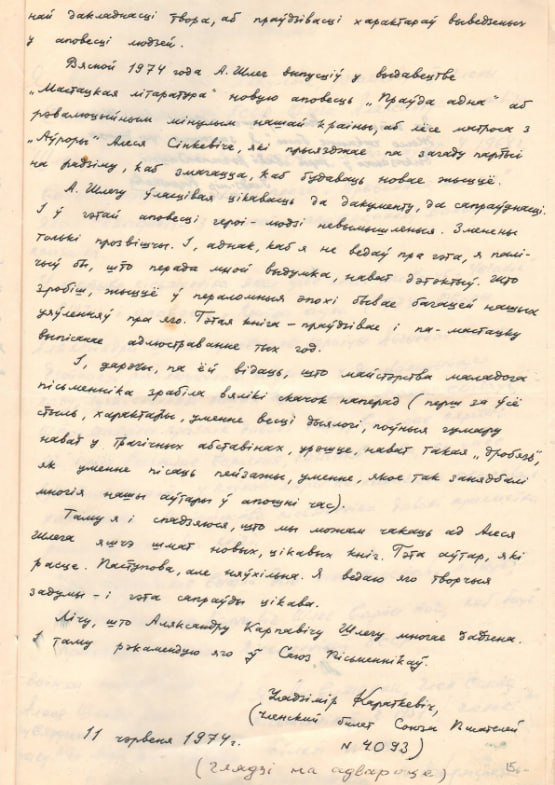 най дакладнасці твора, аб праўдзівасці характараў выведзеных
у аповесці людзей.
Вясной 1974 года А. Шлег выпусціў у выдавецтве
„Мастацкая літаратура" новую аповесць „Праўда адна" аб
рэвалюцыйным мінулым нашай краіны, аб лёсе матроса з
„Аўроры" Алеся Сінкевіча, які прыязджае па загаду партыі
на радзіму, каб змагацца, каб будаваць новае жыццё.
А. Шлегу ўласцівая цікавасць да дакументу, да сапраўднасці.
І ў гэтай аповесці героі - людзі нявымышленыя. Зменены
толькі прозвішчы. І, аднак, каб я не ведаў пра гэта, я палі-
чыў бы, што перада мной выдумка, нават дэтэктыў. Што
зробіш, жыццё ў пераломныя эпохі бывае багацей нашых
уяўленняў пра яго. Гэтая кніга - праўдзівае і па-мастацку
выпісанае адлюстраванне тых год.
І, дарэчы, па ёй відаць, што майстэрства маладога
пісьменніка зрабіла вялікі скачок наперад (перш за ўсё
стыль, характары, уменне весці дыялогі, поўныя гумару
нават у трагічных абставінах, урэшце, нават такая „дробязь",
як уменне пісаць пейзажы, уменне, якое так занядбалі
многія нашы аўтары ў апошні час).
Таму я і спадзяюся, што мы можам чакаць ад Алеся
Шлега яшчэ шмат новых, цікавых кніг. Гэта аўтар, які
расце. Паступова, але няўхільна. Я ведаю яго творчыя
задумы - і гэта сапраўды цікава.
Лічу, што Аляксандру Карпавічу Шлегу многае дадзена.
І таму рэкамендую яго ў Саюз Пісьменнікаў.
Уладзімір Караткевіч,
(Членский билет Союза Писателей
11 чэрвеня 1974 г.
N 4093)
(глядзі на адвароце)
15